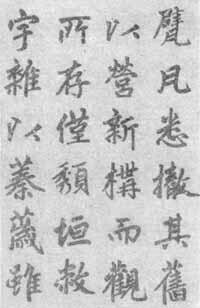 甓凡悉撤其舊
以營新構而觀
所存僅頹垣
宇雜以蓁薉雖